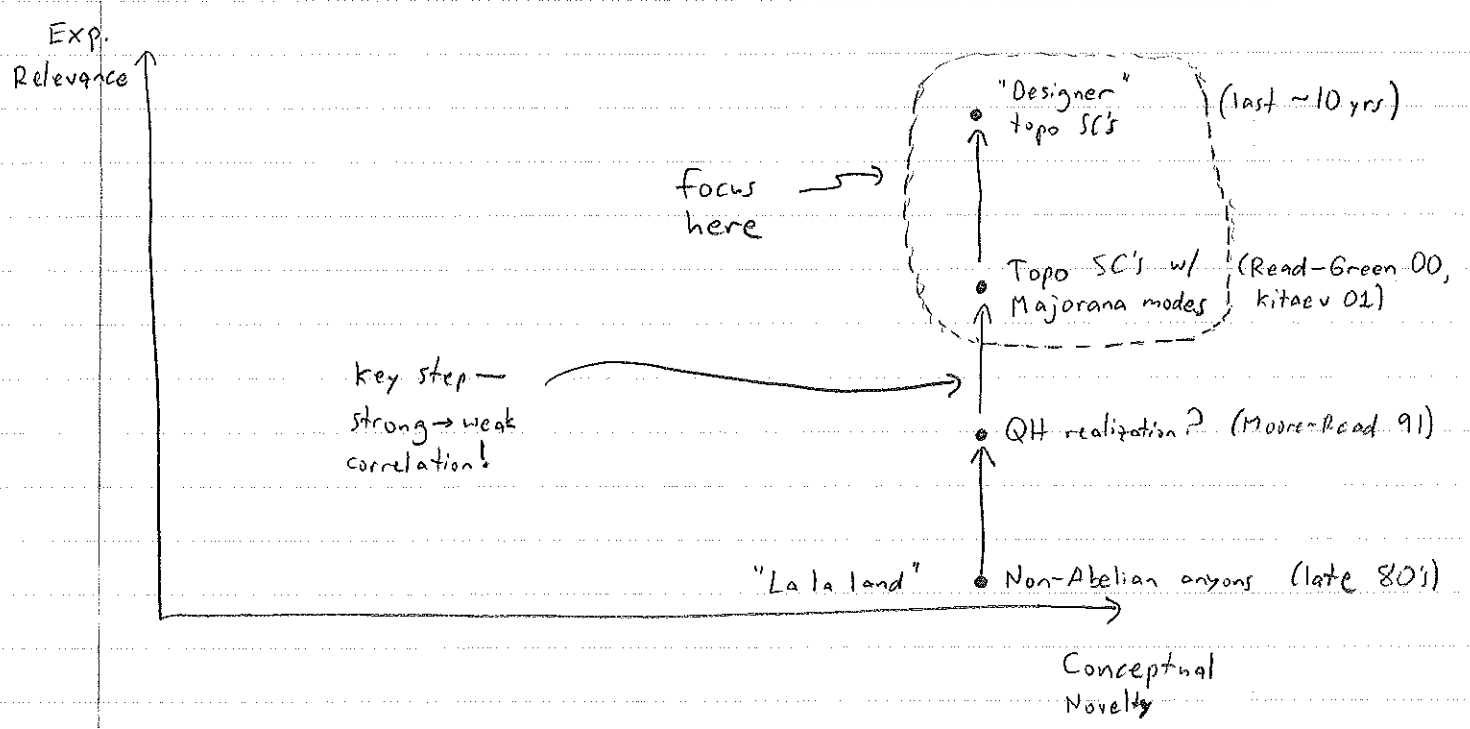 Exp.
Relevance
"Designer"
topo SC's
(last ~10 yrs)
focus
here
Topo SC's w/
Majorana modes
(Read-Green 00,
Kitaev 01)
key step—
strong→weak
correlation!
QH realization? (Moore-Read 91)
"La la land"
Non-Abelian anyons (late 80's)
Conceptual
Novelty